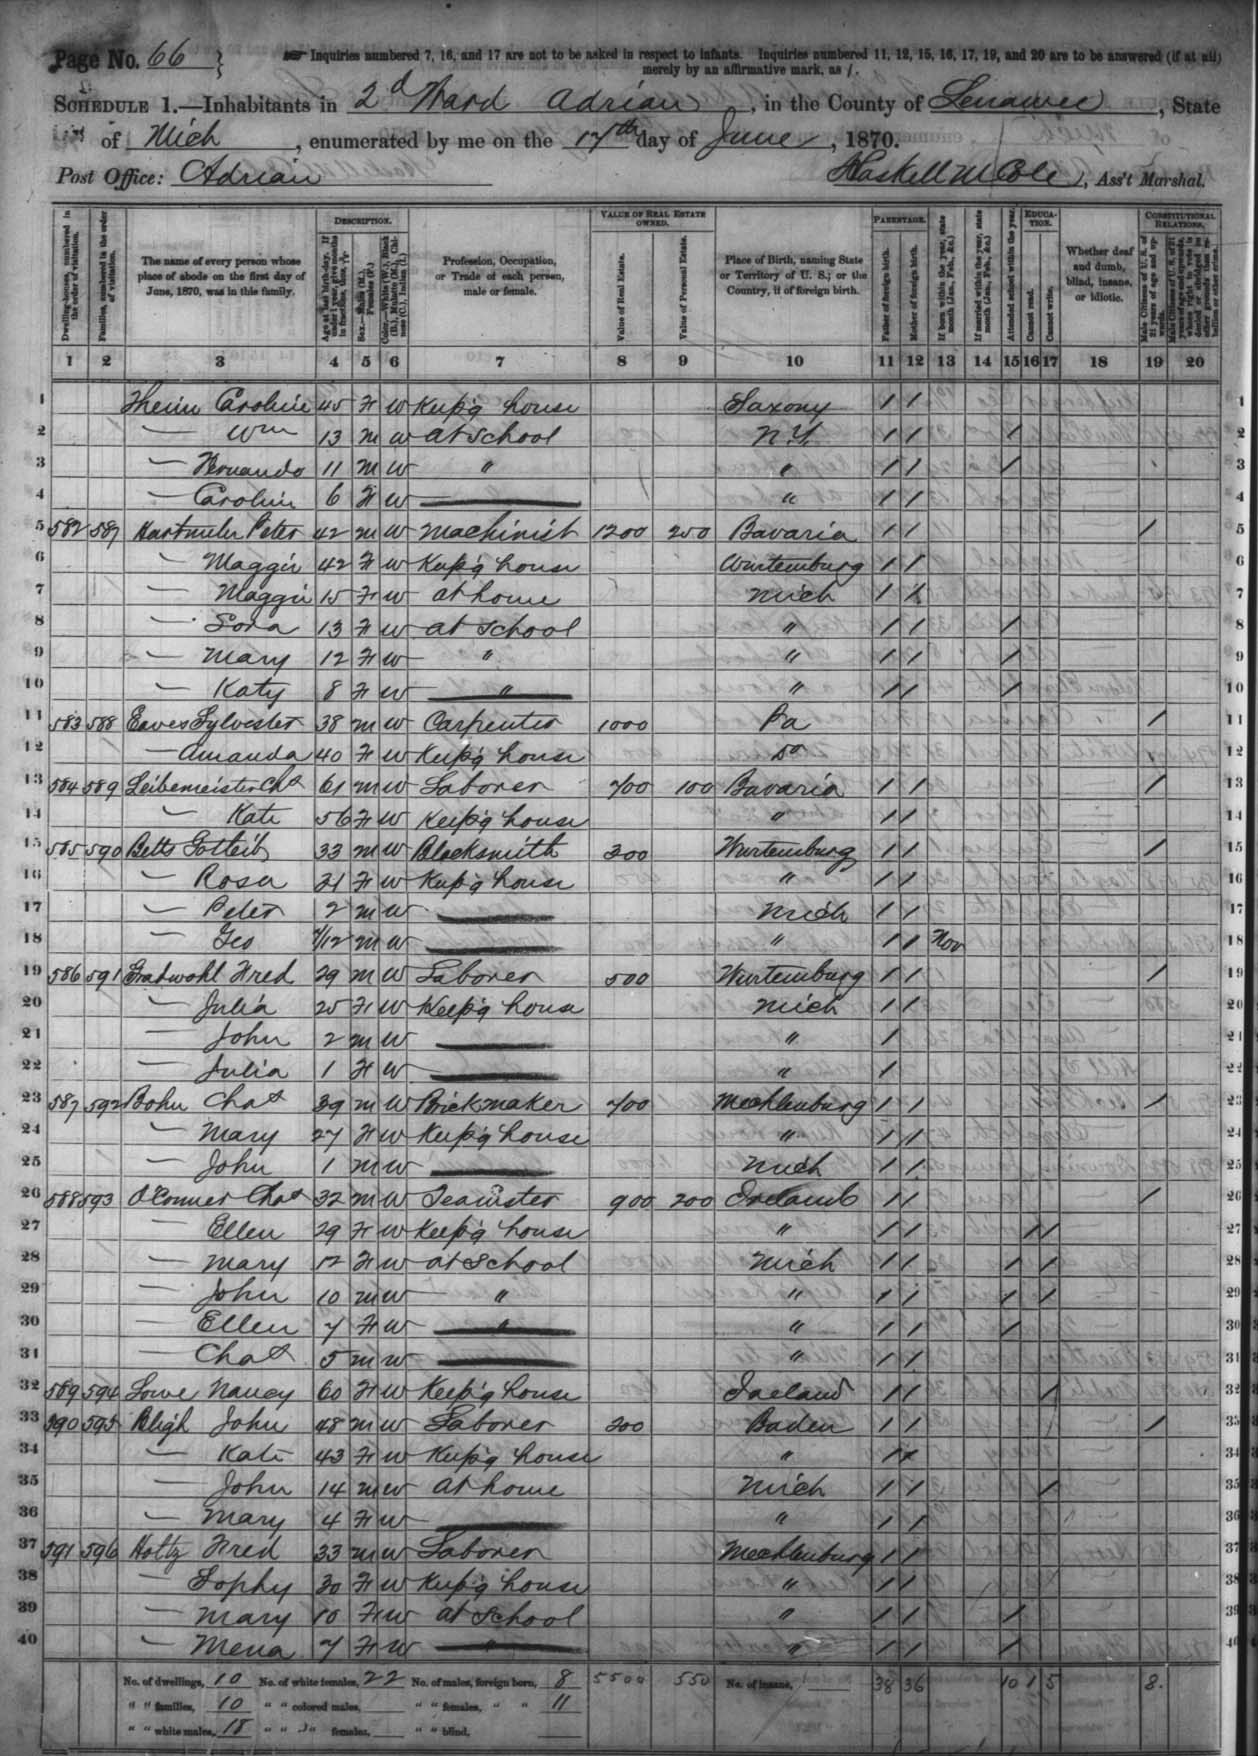 Page No. 66 } Inquiries numbered 7, 16, and 17 are not to be asked in respect to infants. Inquiries numbered 11, 12, 15, 16, 17, 19, and 20 are to be answered (if at all)
merely by an affirmative mark, as /.
SCHEDULE 1.—Inhabitants in 2d Ward Adrian, in the County of Lenawee, State
of Mich, enumerated by me on the 17th day of June, 1870.
Post Office: Adrian Haskell M Cole, Ass't Marshal.
DESCRIPTION. VALUE OF REAL ESTATE OWNED. PARENTAGE. EDUCATION. CONSTITUTIONAL RELATIONS.
Dwelling-houses, numbered in the order of visitation.
Families, numbered in the order of visitation.
The name of every person whose place of abode on the first day of June, 1870, was in this family.
Age at last birth-day. If under 1 year, give months in fractions, thus, 3/12
Sex.—Males (M.), Females (F.)
Color.—White (W.), Black (B.), Mulatto (M.), Chinese (C.), Indian (I.)
Profession, Occupation, or Trade of each person, male or female.
Value of Real Estate.
Value of Personal Estate.
Place of Birth, naming State or Territory of U. S.; or the Country, if of foreign birth.
Father of foreign birth.
Mother of foreign birth.
If born within the year, state month (Jan., Feb., &c.)
If married within the year, state month (Jan., Feb., &c.)
Attended school within the year.
Cannot read.
Cannot write.
Whether deaf and dumb, blind, insane, or idiotic.
Male Citizens of U. S. of 21 years of age and upwards.
1 2 3 4 5 6 7 8 9 10 11 12 13 14 15 16 17 18 19 20
1 Caroline 45 F W Keep'g house Saxony / / 1
2 — Wm 13 M W at school N.Y. / / / 2
3 — 11 M W " " / / / 3
4 — Caroline 6 F W — " / / 4
5 582 587 Peter 42 M W Machinist 1200 250 Bavaria / / / 5
6 — Maggie 42 F W Keep'g house Wurtemburg / / 6
7 — Maggie 15 F W at home Mich / / 7
8 — Lora 13 F W at School " / / / 8
9 — Mary 12 F W " " / / / 9
10 — Katy 8 F W " " / / / 10
11 583 588 Eaves Sylvester 38 M W Carpenter 1000 Pa / 11
12 — Amanda 40 F W Keep'g house Do 12
13 584 589 Leibemeister Chas 61 M W Laborer 700 100 Bavaria / / / 13
14 — Kate 56 F W Keep'g house " / / 14
15 585 590 Betts Gotteib 33 M W Blacksmith 300 Wurtemburg / / / 15
16 — Rosa 31 F W Keep'g house " / / 16
17 — Peter 2 M W — Mich / / 17
18 — Geo 7/12 M W — " / / Nov 18
19 586 591 Gradwohl Fred 29 M W Laborer 500 Wurtemburg / / / 19
20 — Julia 25 F W Keep'g house Mich / / 20
21 — John 2 M W — " / 21
22 — Julia 1 F W — " / 22
23 587 592 Bohn Chas 39 M W Brick maker 700 Mechlenburg / / / 23
24 — Mary 27 F W Keep'g house " / / 24
25 — John 1 M W — Mich / / 25
26 588 593 O'Conner Chas 32 M W Teamster 900 200 Ireland / / / 26
27 — Ellen 29 F W Keep'g house " / / / / 27
28 — Mary 12 F W at School Mich / / / / 28
29 — John 10 M W " " / / / / 29
30 — Ellen 7 F W " " / / / 30
31 — Chas 5 M W — " / / 31
32 589 594 Lowe Nancy 60 F W Keep'g house Ireland / / / 32
33 590 595 Bligh John 48 M W Laborer 200 Baden / / / 33
34 — Kate 43 F W Keep'g house " / / 34
35 — John 14 M W at home Mich / / / 35
36 — Mary 4 F W — " / / 36
37 591 596 Holtz Fred 33 M W Laborer Mechlenburg / / 37
38 — Sophy 30 F W Keep'g house " / / 38
39 — Mary 10 F W at School " / / / 39
40 — Mena 7 F W " " / / / 40
No. of dwellings, 10 No. of white females, 22 No. of males, foreign born, 8 5500 550 No. of insane, 38 36 10 1 5 8.
" " families, 10 " " colored males, " " females, " " 11
" " white males, 18 " " " females, " " blind,